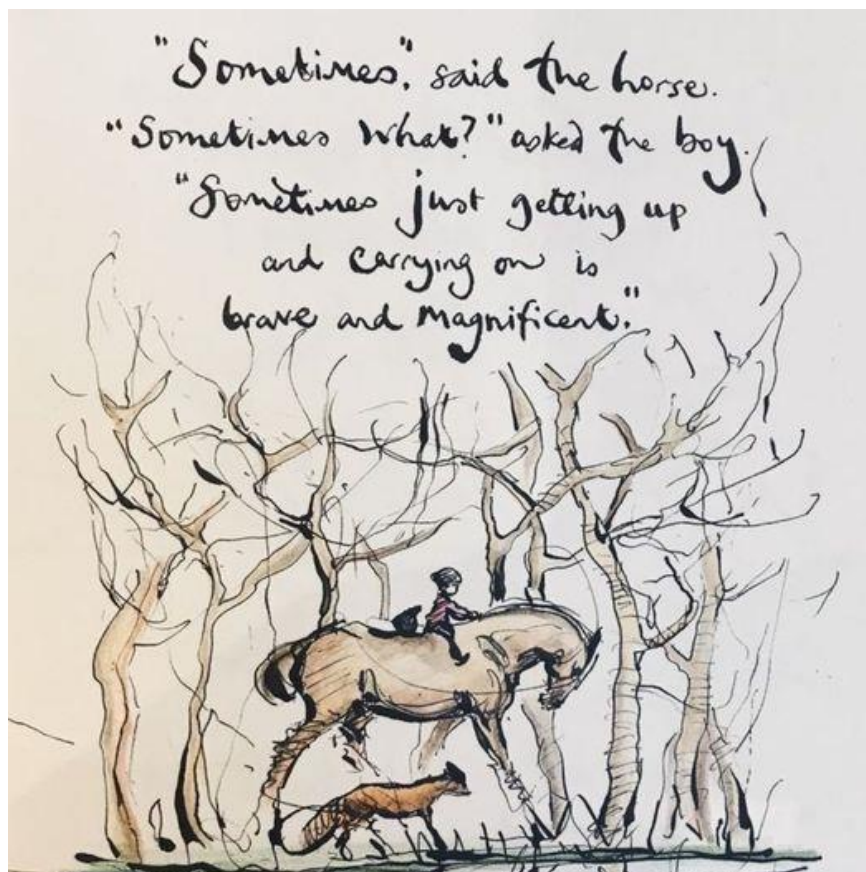 "Sometimes", said the horse.
"Sometimes what?" asked the boy.
"Sometimes just getting up
and carrying on is
brave and magnificent."